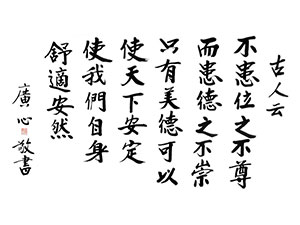 古人云
不患位之不尊
而患德之不崇
只有美德可以
使天下安定
使我們自身
舒適安然
廣心敬書